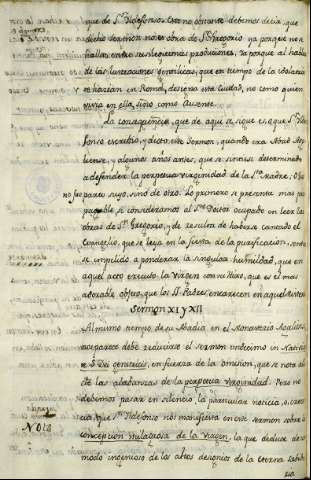 que de Sn. Ildefonso. Esto no obstante debemos decir, que
dicho sermon no es obra de Sn. Gregorio ya porque no se
halla entre sus legitimas produciones, ya porque al hablar
de las lustraciones Gentilicas, que en tiempo de la idolatria
se hazian en Roma, designa esta ciudad, no como quien
vivia en ella, sino como Ausente.
La consequencia, que de aqui se sigue es que Sn. Ilde
fonso escribio, y dicto este Sermon, quando era Abad Aga
liense, y algunos anos antes, que se sintiese determinado
a defender la perpetua virginidad de la Sma. Madre; O que
no fue parto suyo, sino de otro. Lo primero se presenta mas pro
pugnable si consideramos al Sto. Doctor ocupado en leer las
obras de Sn. Gregorio, y de resulta de haberse cantado el
Evangelio, que se leya en la fiesta de la purificacion,
se implico a ponderar la singular humildad, que en
aquel acto executo la Virgen con su Hijo, que es el mas
adorable objeto, que los SS. Padres encarecen en aquel
Sermon XI y XII
Al mismo tiempo de su Abadia en el Monasterio Agaliense
me parece debe reducirse el sermon undecimo in Nativita
te S. Dei genitricis, en fuerza de la omision, que se nota
de las alabanzas de la perpetua virginidad. Pero no
debemos pasar en silencio la particular noticia, o creen
cia que Sn. Ildefonso nos manifiesta en este sermon sobre la
Nota
concepcion milagrosa de la Virgen, la que deduce de un
modo ingenioso de los altos designios de la eterna Sabidu